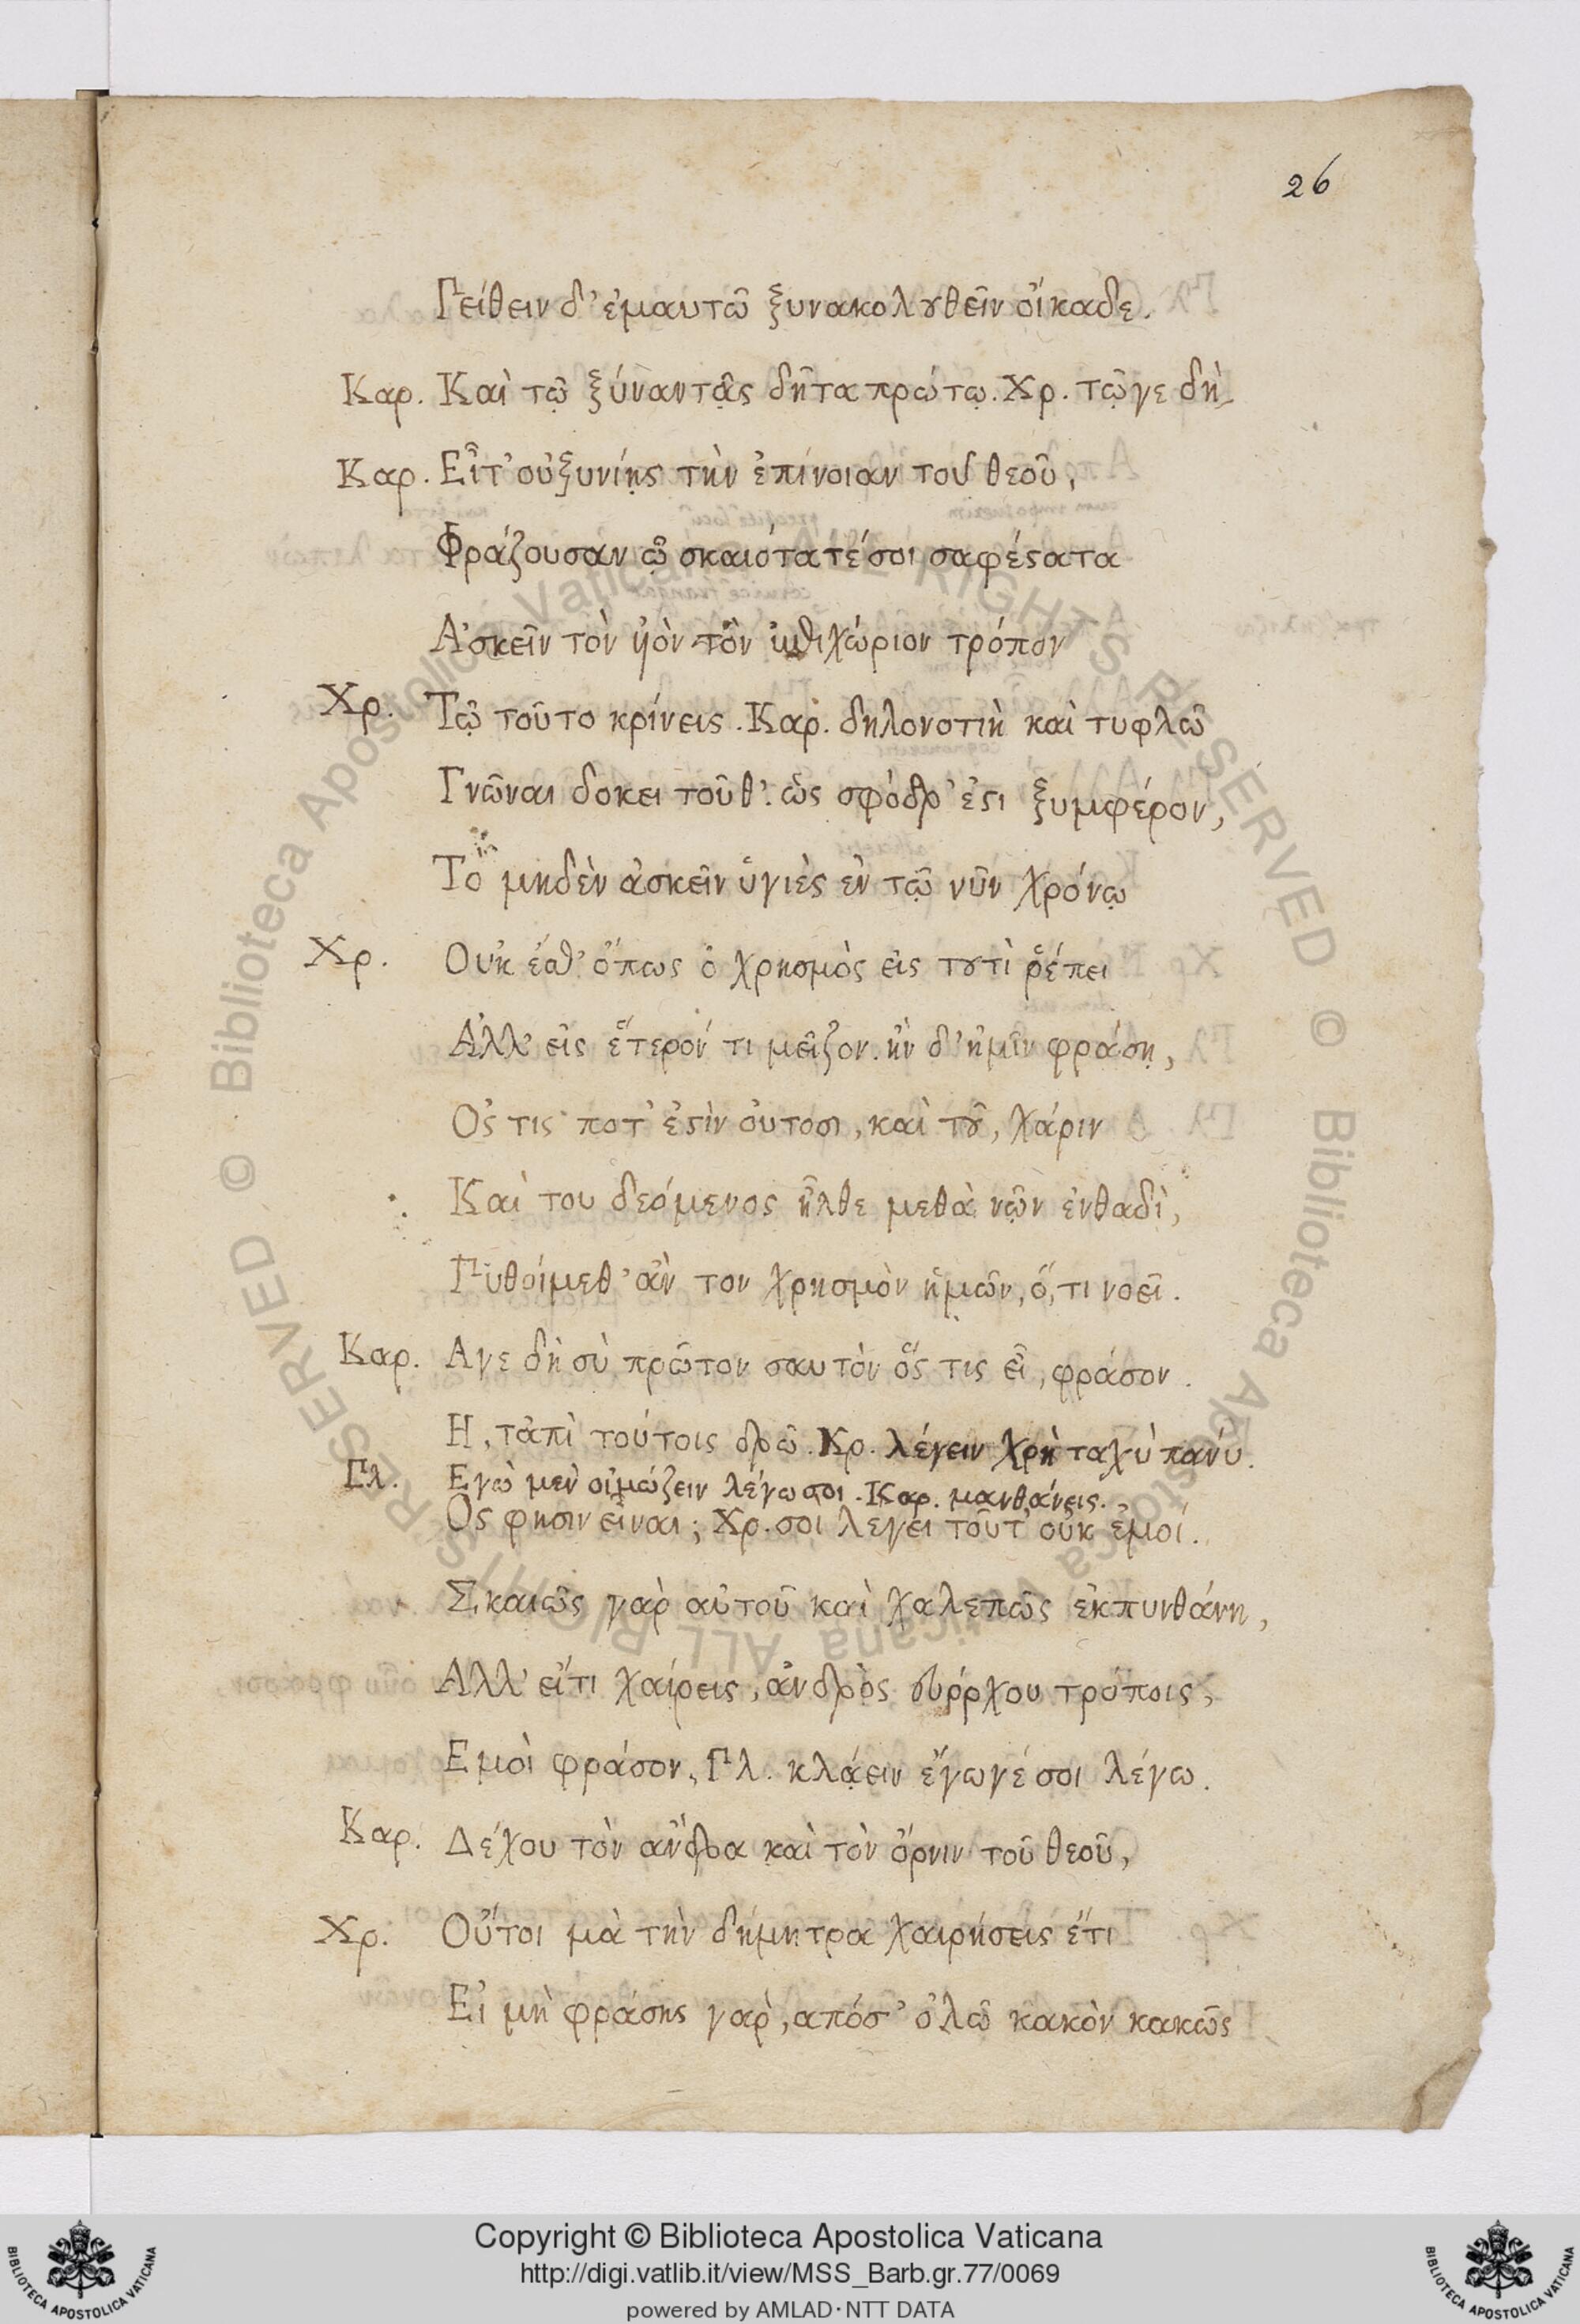 26
Πείθειν δ' ἐμαυτῶ ξυνακολουθεῖν οἴκαδε.
Καρ. Καὶ τῷ ξύναντᾷς δῆτα πρώτῳ. Χρ. τῷγε δὴ
Καρ. Εἶτ' οὐξυνίης τὴν ἐπίνοιαν τοῦ θεοῦ,
Φράζουσαν ᾧ σκαιότατέσοι σαφέϛατα
Ἀσκεῖν τὸν ὑὸν τὸν τρόπον
Χρ. Τῷ τοῦτο κρίνεις. Καρ. δηλονοτιὴ καὶ τυφλῶ
Γνῶναι δοκει τοῦθ'. ὡς σφόδρ' ἐϛι ξυμφέρον,
Το μηδὲν ἀσκεῖν ὑγιὲς εν τῷ νῦν χρόνῳ
Χρ. Ουκ έσθ' ὅπως ὁ χρησμὸς εις τουτὶ ῥέπει
Ἀλλ' εἰς ἕτερόν τι μεῖζον. ἢν δ' ἡμῖν φράσῃ,
Ὅς τις ποτ' ἐϛὶν ουτοσι, καὶ τοῦ, χάριν
Καὶ του δεόμενος ἦλθε μεθὰ νῷν ἐνθαδὶ,
Πυθοίμεθ' ἂν τον χρησμὸν ἡμῶν, ὅ, τι νοεῖ.
Καρ. Αγε δὴ σὺ πρῶτον σαυτὸν ὅς τις εἶ, φράσον.
Η, τἀπὶ τούτοις δρῶ. Χρ. λέγειν χρὴ ταχὺ πανύ.
Πλ. Εγὼ μεν οἰμώζειν λέγω σοι. Καρ. μανθάνεις.
Ὅς φησιν εἶναι; Χρ. σοι λεγει τοῦτ' οὐκ ἐμοί.
Σκαιῶς γαρ αὐτοῦ καὶ χαλεπῶς ἐκπυνθάνη,
Αλλ' εἴτι χαίρεις, ἀνδρὸς ευόρκου τρόποις,
Εμοὶ φράσον, Πλ. κλᾴειν ἔγωγέ σοι λέγω.
Καρ. Δέχου τὸν ἄνδρα καὶ τὸν ὄρνιν τοῦ θεοῦ,
Χρ. Οὔτοι μὰ τὴν δήμητρα χαιρήσεις ἔτι
Εἰ μὴ φράσης γαρ, απόσ' ὀλῶ κακὸν κακῶς
© Biblioteca Apostolica Vaticana ALL RIGHTS RESERVED
© Biblioteca Apostolica Vaticana ALL RIGHTS RESERVED
Copyright © Biblioteca Apostolica Vaticana
http://digi.vatlib.it/view/MSS_Barb.gr.77/0069
powered by AMLAD·NTT DATA
BIBLIOTECA APOSTOLICA VATICANA
BIBLIOTECA APOSTOLICA VATICANA